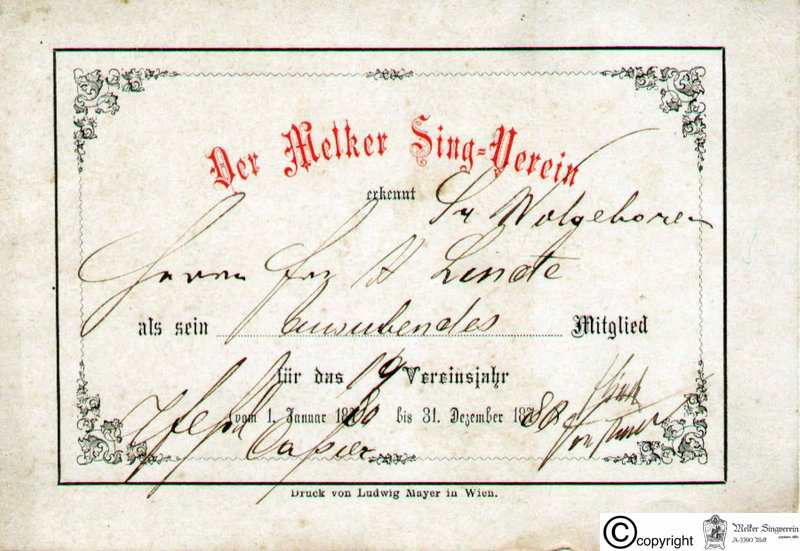 Der Melker Sing-Verein
erkennt Sr Wolgeboren
Herrn Frz Linde
als sein ausubendes Mitglied
für das 19 Vereinsjahr
vom 1. Januar 1880 bis 31. Dezember 1880
Druck von Ludwig Mayer in Wien.
©copyright Melker Singverein
A-3390 Melk